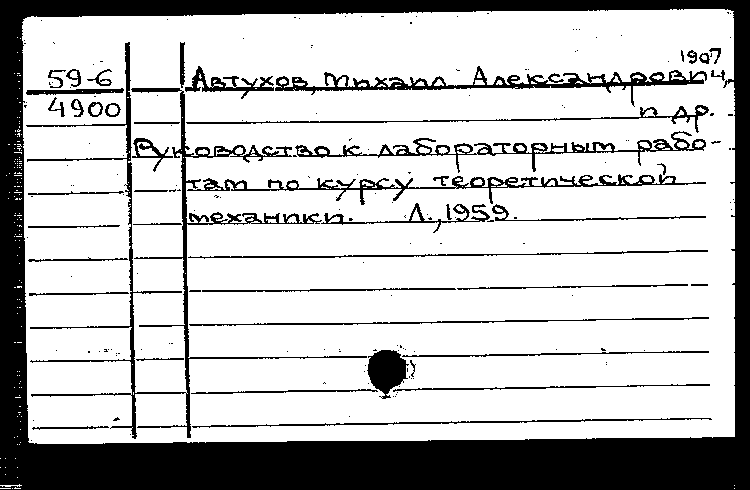 1907
59-6 Автухов, Михаил Александрович,
4900 и др.
Руководство к лабораторным рабо-
там по курсу теоретической
механики. Л., 1959.